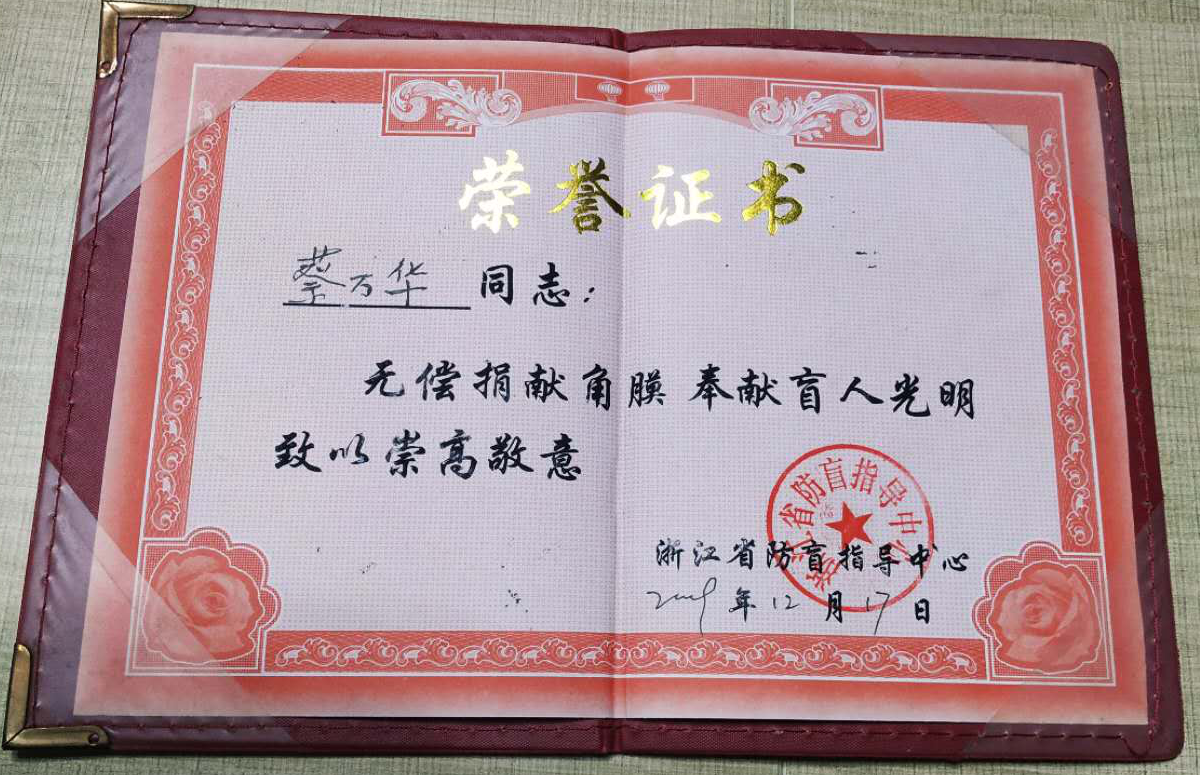 荣誉证书
蔡万华 同志：
无偿捐献角膜 奉献盲人光明
致以崇高敬意
浙江省防盲指导中心
浙江省防盲指导中心
2009年12月17日